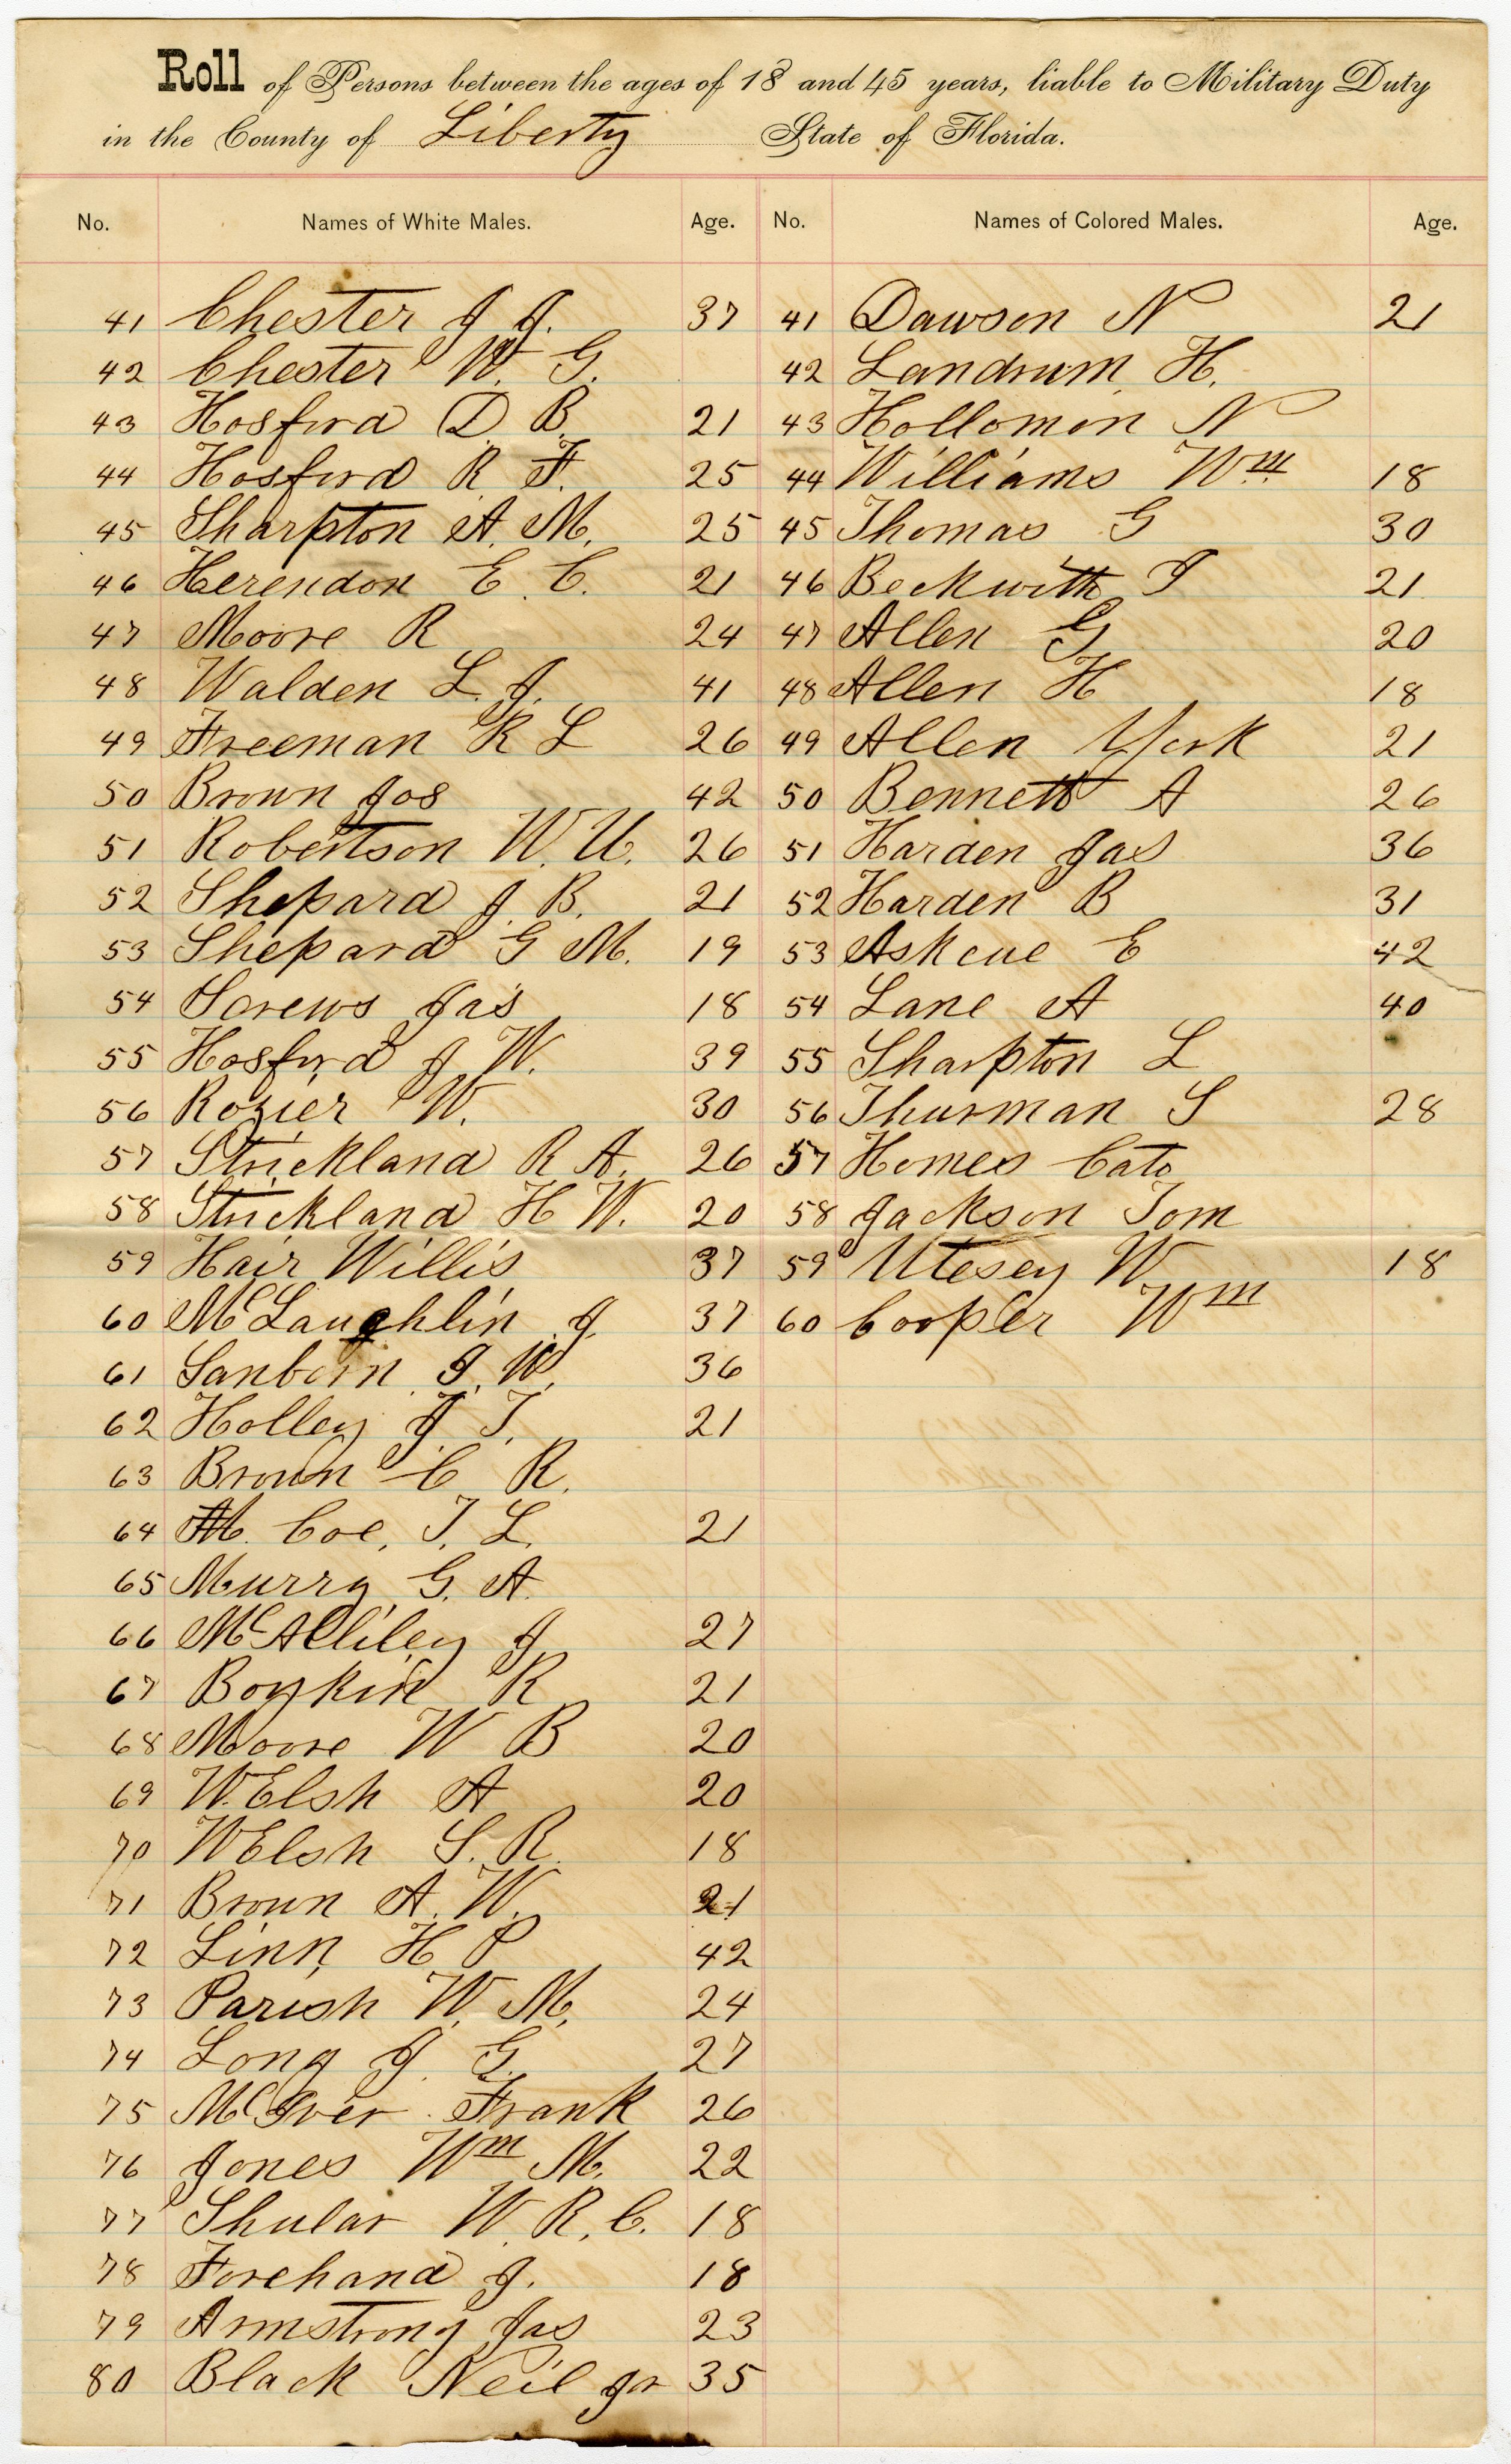 Roll of Persons between the ages of 18 and 45 years, liable to Military Duty
in the County of Liberty State of Florida.
No. Names of White Males. Age. No. Names of Colored Males. Age.
41 Chester J J. 37 41 Dawson N 21
42 Chester W. G. 42 Landrum H.
43 Hosford D B. 21 43 Hollomon N
44 Hosford R. F. 25 44 Williams Wm. 18
45 Sharpton A. M. 25 45 Thomas G 30
46 Herendon E. C. 21 46 Beckwith I 21
47 Moore R 24 47 Allen G 20
48 Walden L. J. 41 48 Allen H 18
49 Freeman R L 26 49 Allen York 21
50 Brown Jos 42 50 Bennett A 26
51 Robertson W. U. 26 51 Harden Jas 36
52 Shepard J. B. 21 52 Harden B 31
53 Shepard G M. 19 53 Askeue E 42
54 Screws Jas 18 54 Lane A 40
55 Hosford J W. 39 55 Sharpton L
56 Rozier W. 30 56 Thurman S 28
57 Strickland R A. 26 57 Homes Cato
58 Strickland H W. 20 58 Jackson Tom
59 Hair Willis 37 59 Utesey W 18
60 McLaughlin J. 37 60 Cooper Wm
61 Sanborn J. W. 36
62 Holley J T. 21
63 Brown C R.
64 M. Coe, T. L. 21
65 Murry G. A.
66 McAlliley J 27
67 Boykin R 21
68 Moore W B 20
69 Welsh A 20
70 Welsh S. R. 18
71 Brown A. W. 21
72 Linn H P 42
73 Parish W. M. 24
74 Long J. G. 27
75 McIver Frank 26
76 Jones Wm M. 22
77 Shular W. R. C. 18
78 Forehand J. 18
79 Armstrong Jas 23
80 Black Neil Jr 35